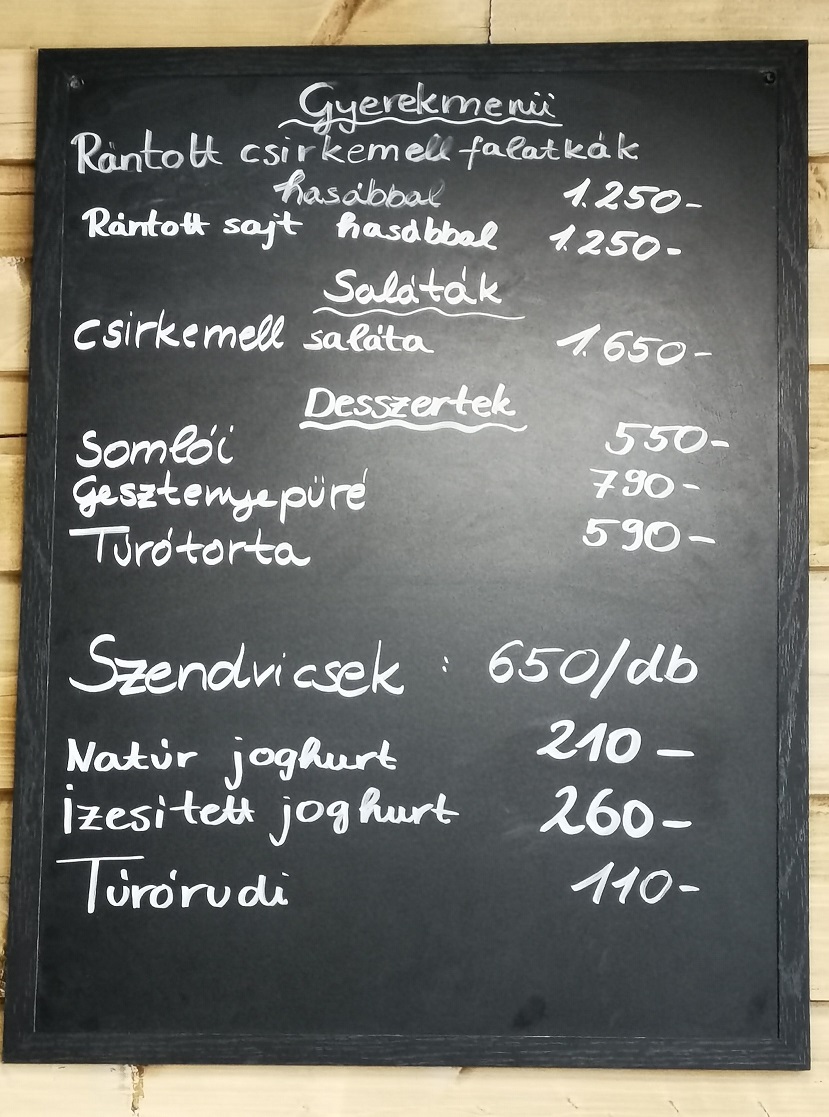 Gyerekmenü
Rántott csirkemell falatkák
hasábbal 1.250-
Rántott sajt hasábbal 1.250-
Saláták
csirkemell saláta 1.650-
Desszertek
Somlói 550-
Gesztenyepüré 790-
Túrótorta 590-
Szendvicsek : 650/db
Natúr joghurt 210-
Ízesitett joghurt 260-
Túrórudi 110-